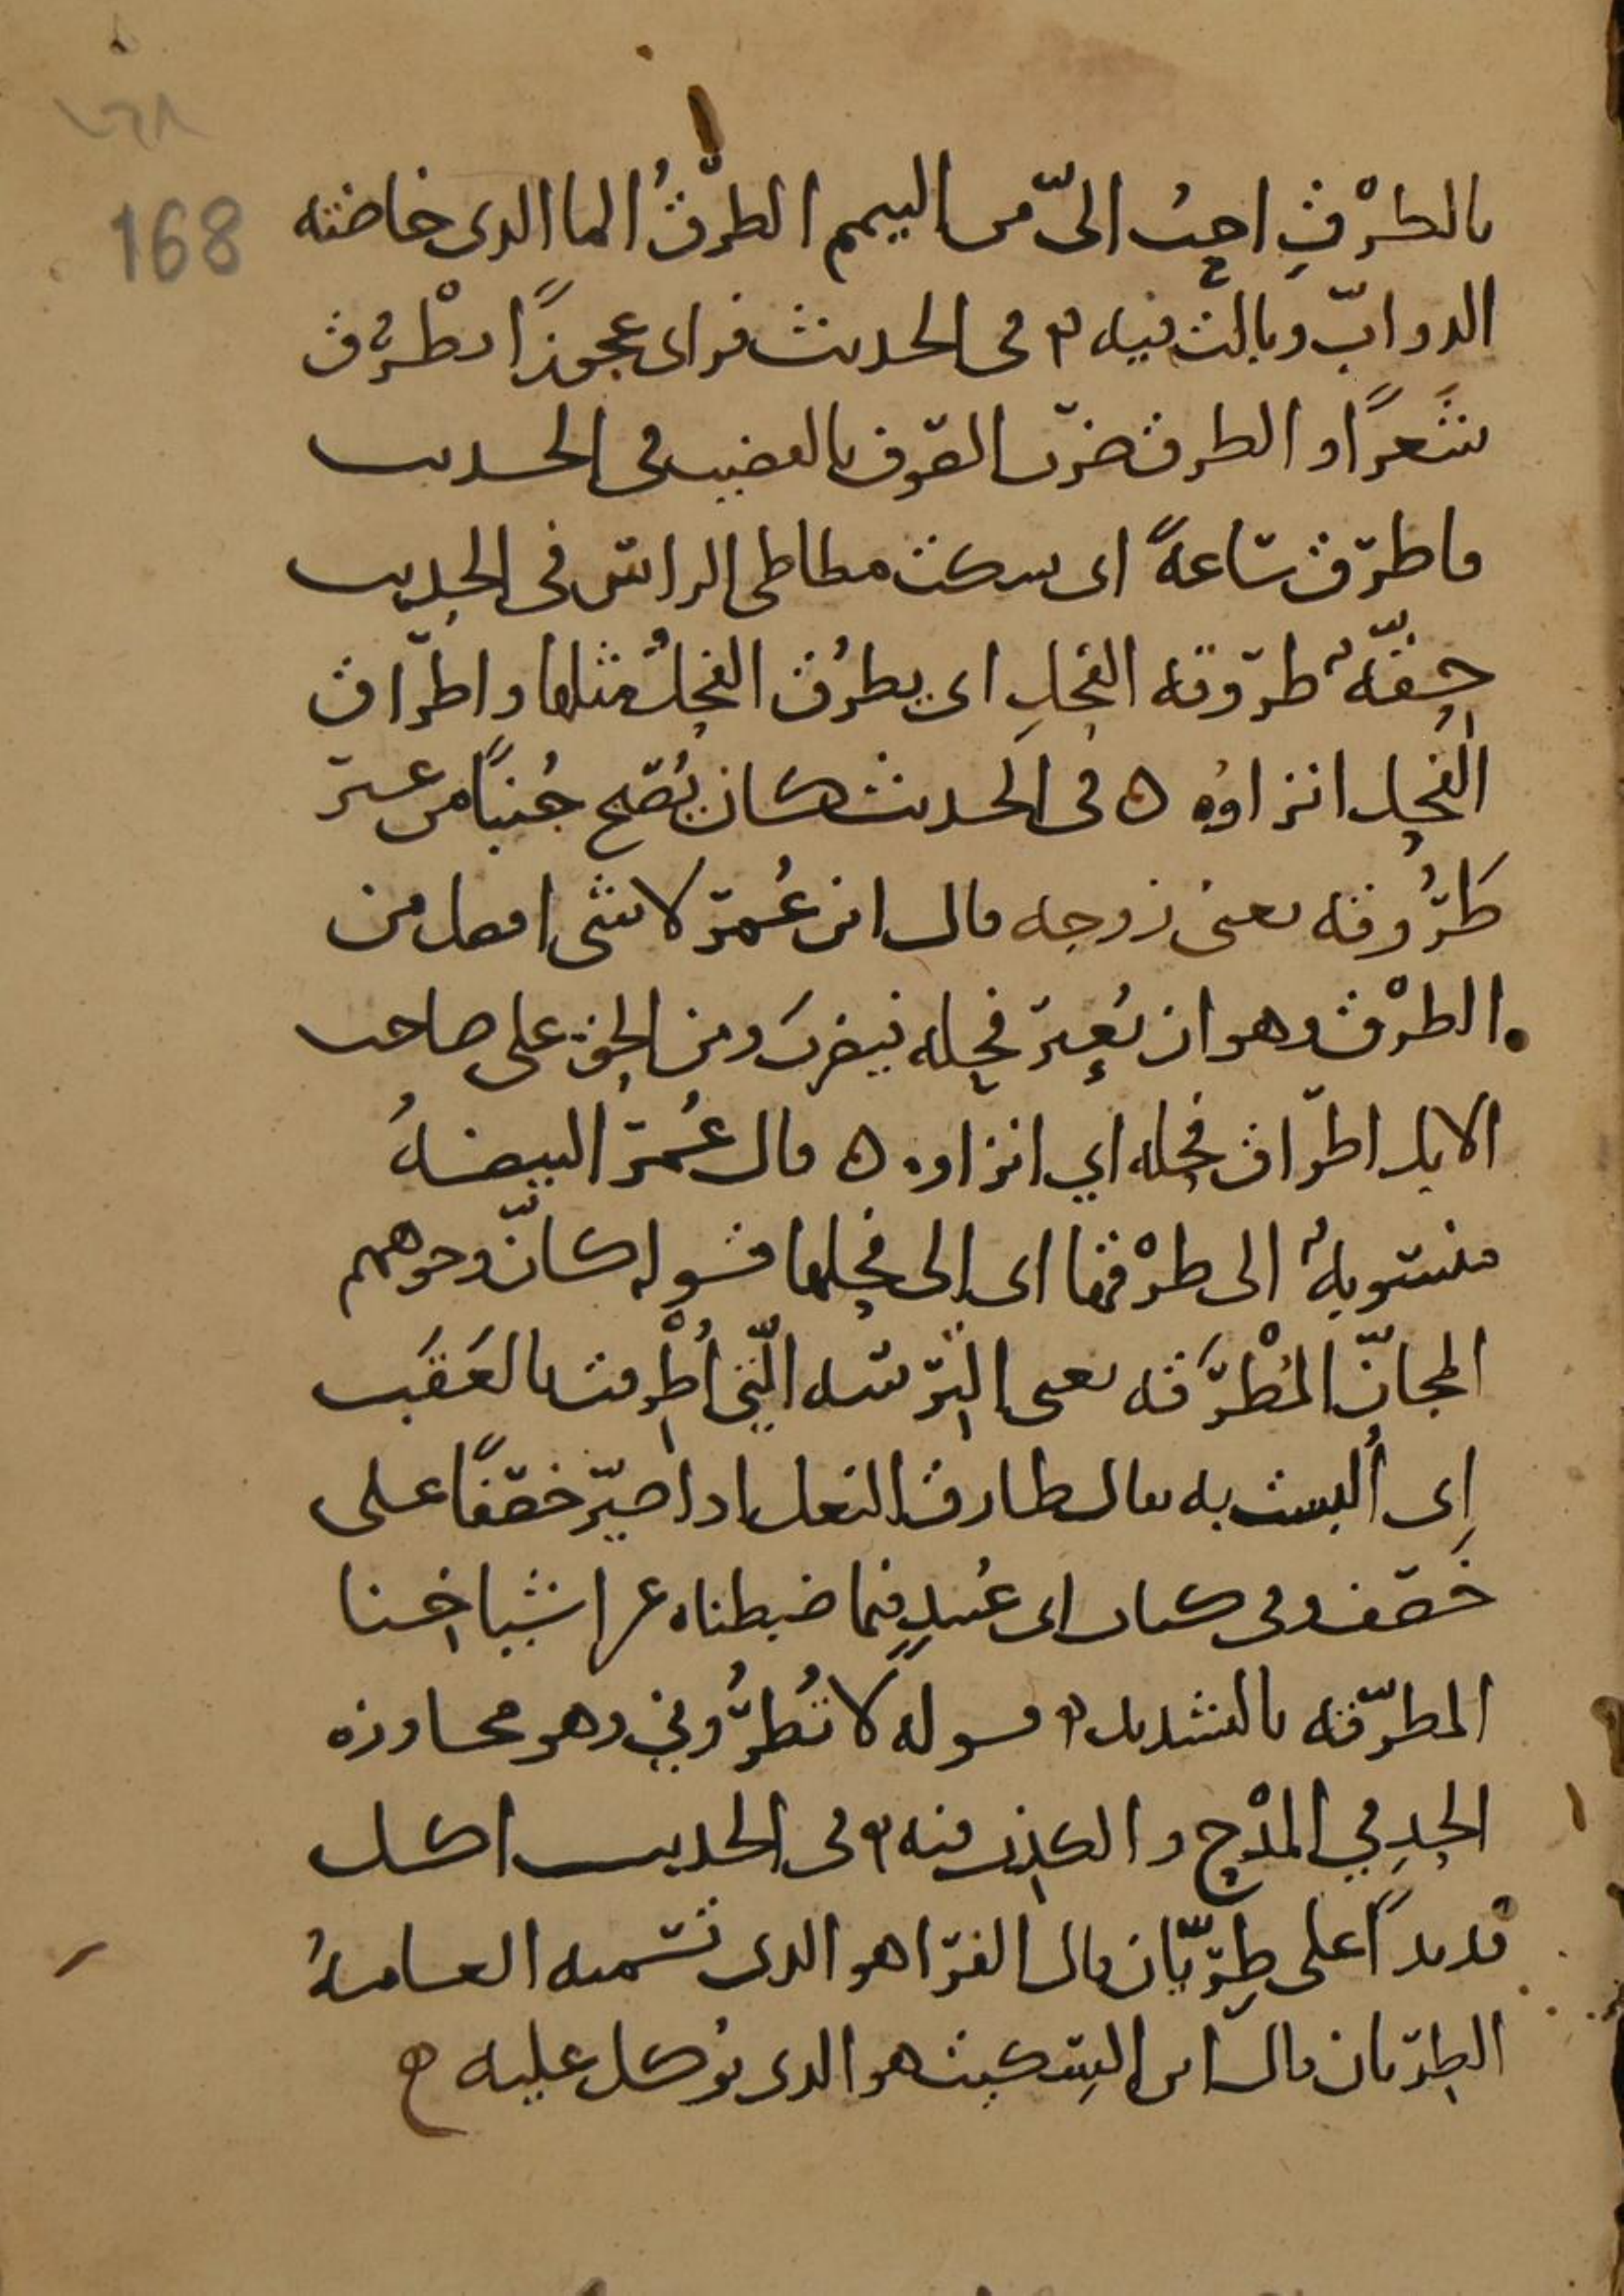 ١٦٨
168
بالطَرْقِ احبُ الىّ من التيمم الطَرْقُ الما الذى خاضته
الدوابّ وبالت فيه ه فى الحديث فراى عجوزًا تطْرُق
شَعرًا والطرق ضرب الصوف بالقضيب فى الحديث
فاطرق ساعةً اى سكت مطاطى الراس فى الحديث
حِقّةٌ طروقه الفحلِ اى يطرُق الفحلُ مثلها واطراق
الفحل انزاوُه ه فى الحديث كان يُصبح جُنبًا من غير
طَرُوقه يعنى زوجه قال ابن عُمر لا شى افضل من
الطرْق وهو ان يُعِير فحله فيضربَ ومن الحق على صاحب
الابل اطراق فحله اي انزاوه ه قال عُمر البيضهُ
منسوبهٌ الى طرْقها اى الى فحلها قوله كانّ وجوههم
المجانّ المُطْرَقه يعنى التِرَسه الّتي اُطْرِقت بالعَقَب
اِى اُلبست به يقال طارق النعل اذا صيّر خصفًا على
خَصَف وفى كتاب ابى عُبيدٍ فيما ضبطناه عن اشياخنا
المطرّقه بالتشديد ه قوله لا تُطرُوني وهو مجاوزه
الحدِ في المدْح والكذب فيه ه فى الحديث اكل
قديدًا على طِرّيان قال الفرا هو الذى تسميه العامهُ
الطِرّيان قال ابن السِكيت هو الذى يوكل عليه ه